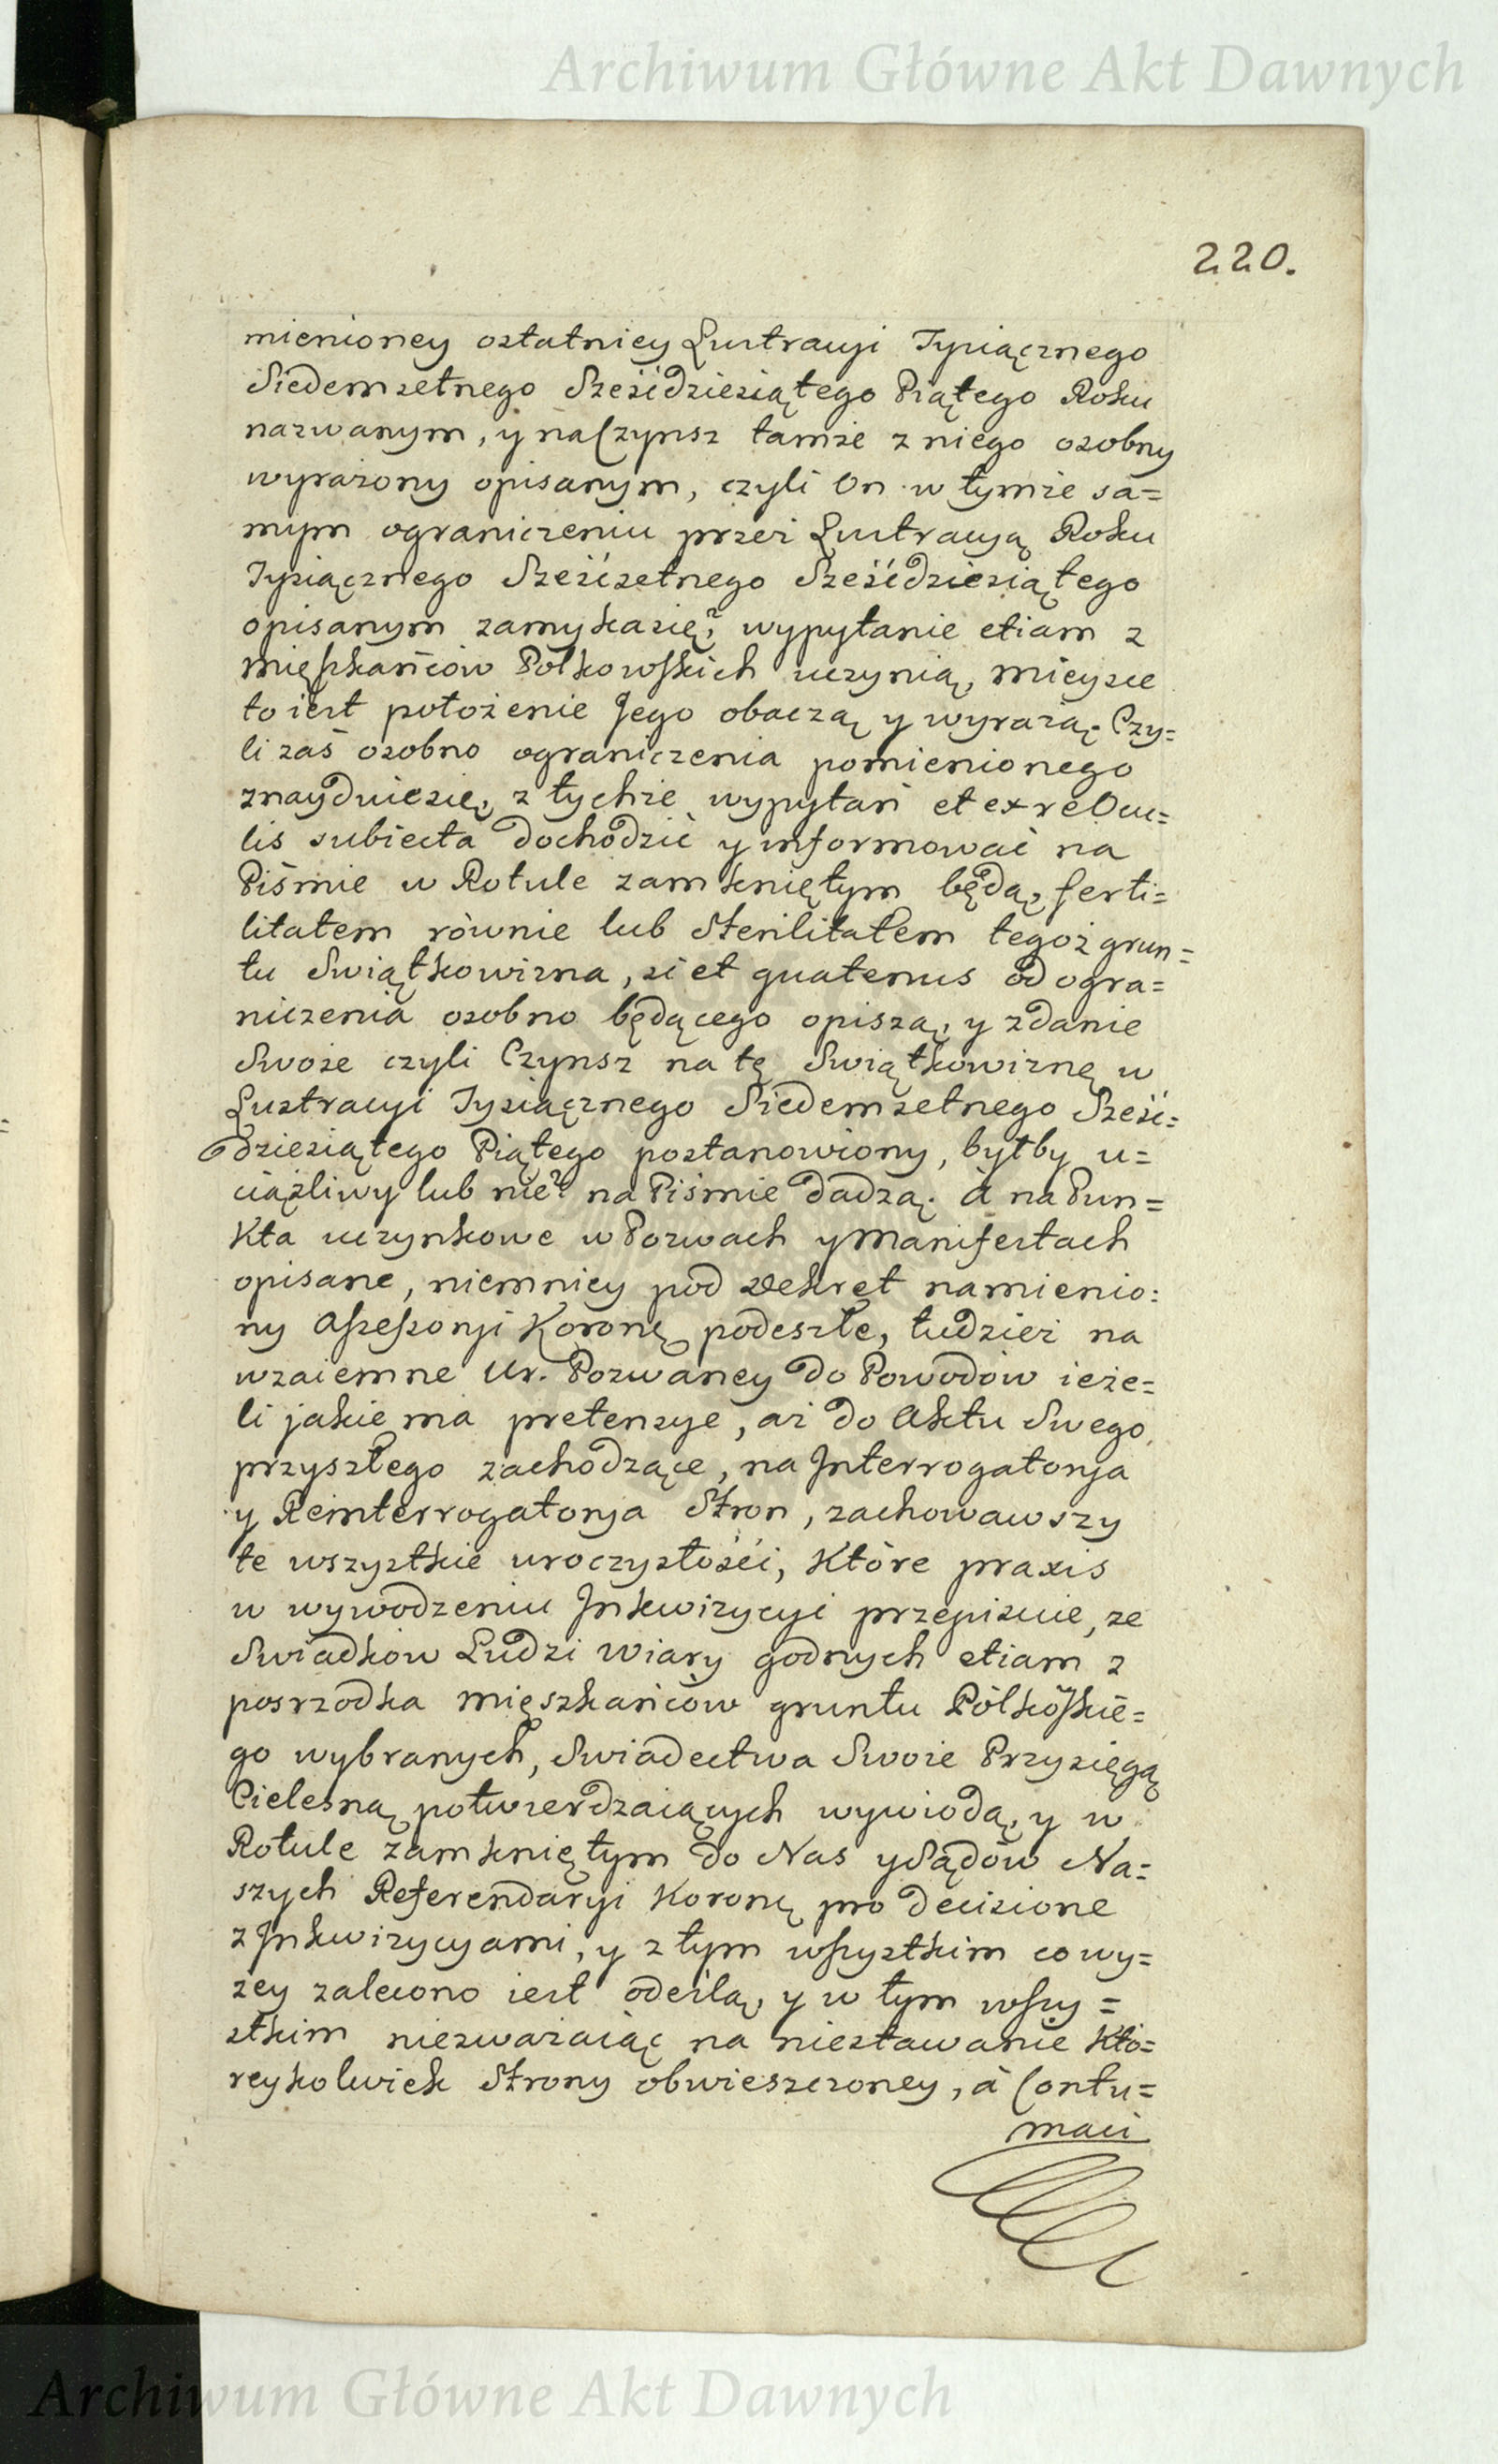 Archiwum Główne Akt Dawnych
220.
mienioney ostatniey Lustracyi Tysiącznego
Siedemsetnego Sześćdziesiątego Piątego Roku
nazwanym, y na Czynsz tamże z niego osobny
wyrażony opisanym, czyli On w tymże sa=
mym ograniczeniu przez Lustracyą Roku
Tysiącznego Sześćsetnego Sześćdziesiątego
opisanym zamyka się? wypytanie etiam z
mięszkańców Polkowskich uczynią, mieysce
to iest położenie Jego obaczą y wyrażą. Czy=
li zaś osobno ograniczenia pomienionego
znayduie się, z tychże wypytań et ex re Ocu=
lis subiecta dochodzić y informować na
Piśmie w Rotule zamkniętym będą, ferti=
litatem równie lub Sterilitatem tegoż grun=
tu Swiątkowizna, si et quatenus od ogra=
niczenia osobno będącego opiszą, y zdanie
Swoie czyli Czynsz na tę Swiątkowiznę w
Lustracyi Tysiącznego Siedemsetnego Sześć=
dziesiątego Piątego postanowiony, byłby u=
ciążliwy lub nie? na Piśmie dadzą. à na Pun=
kta uczynkowe w Pozwach y Manifestach
opisane, niemniey pod Dekret namienio:
ny Assessoryi Koronę podeszłe, tudzież na
wzaiemne Ur. Pozwaney do Powodów ieże=
li jakie ma pretensye, aż do Aktu Swego
przyszłego zachodzące, na Interrogatorya
y Reinterrogatorya Stron, zachowawszy
te wszystkie uroczystości, które praxis
w wywodzeniu Inkwizycyi przepisuie, ze
Swiadków Ludzi wiary godnych etiam z
posrzodka mięszkańców gruntu Pólkoskie=
go wybranych, Swiadectwa Swoie Przysięgą
Cielesną potwierdzaiących wywiodą, y w
Rotule zamkniętym do Nas y Sądów Na=
szych Referendaryi Koronę pro decisione
z Inkwizycyami, y z tym wszystkim co wy=
żey zalecono iest odeślą, y w tym wszy=
stkim niezważaiąc na niestawanie któ=
reykolwiek Strony obwieszczoney, à Contu=
maci
Archiwum Główne Akt Dawnych